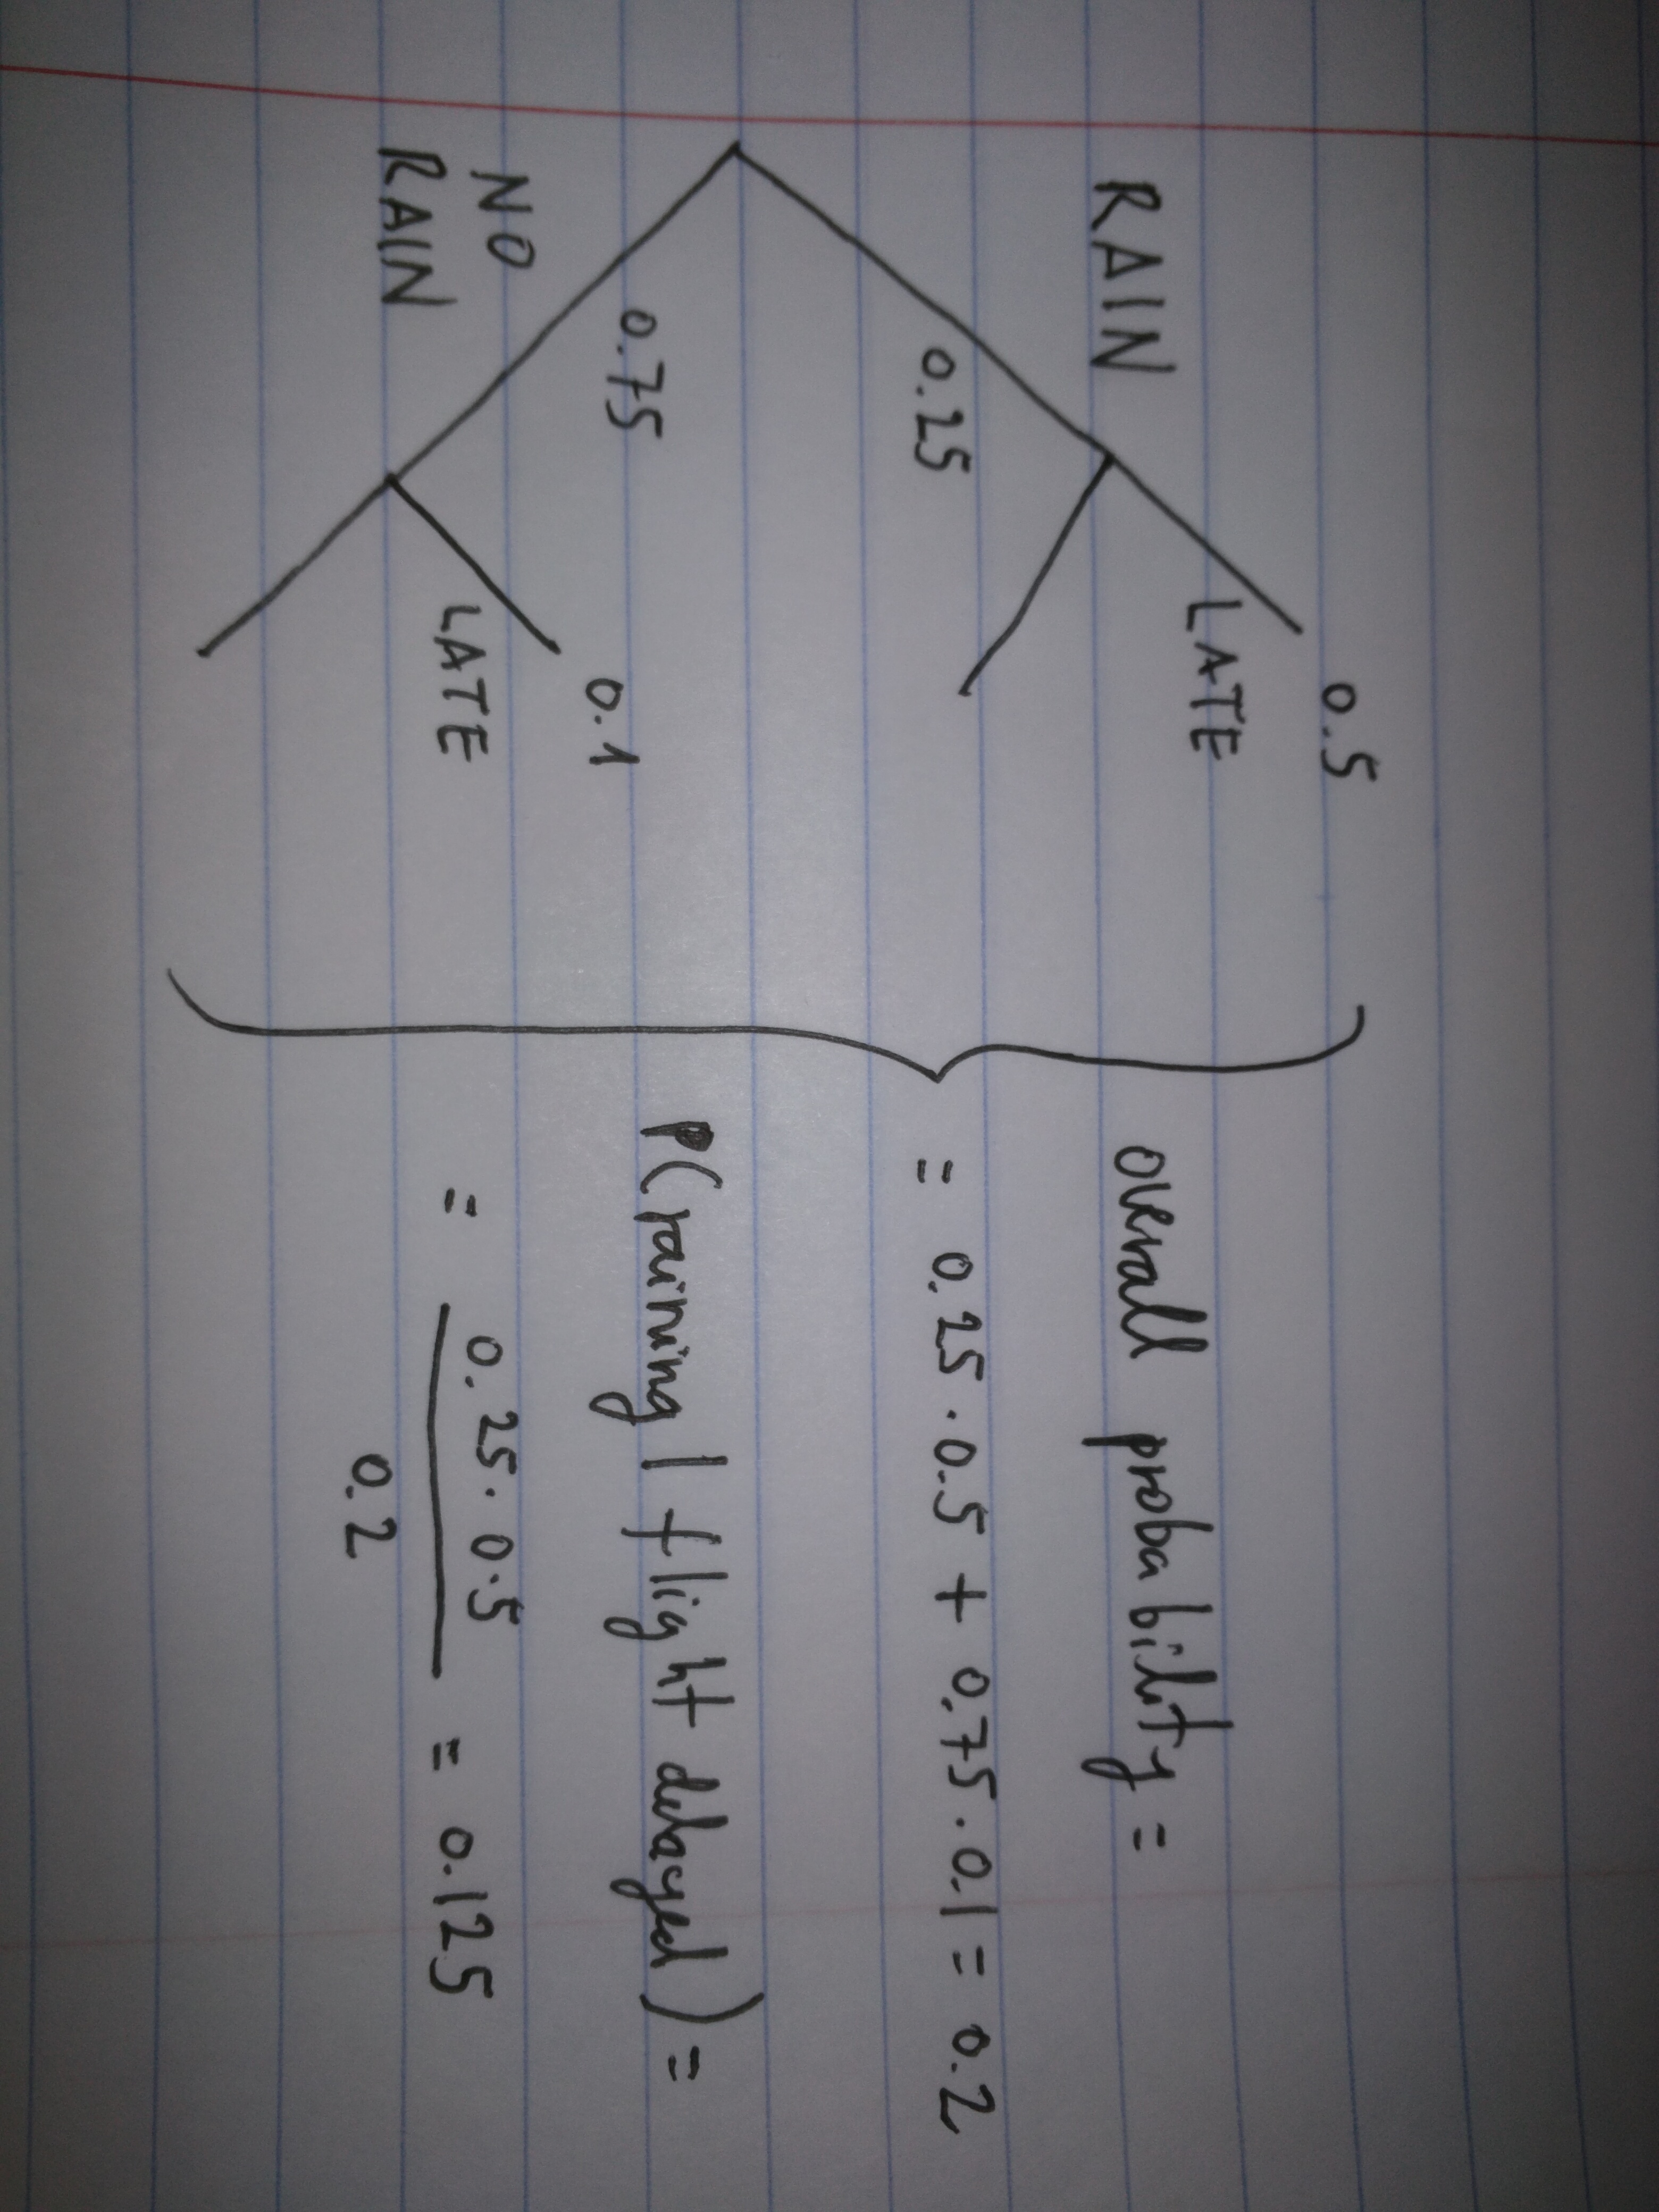 RAIN
0.5
LATE
0.25
0.75
0.1
NO
RAIN
LATE
overall probability =
= 0.25 · 0.5 + 0.75 · 0.1 = 0.2
P(raining | flight delayed) =
= 0.25 · 0.5
0.2
= 0.125